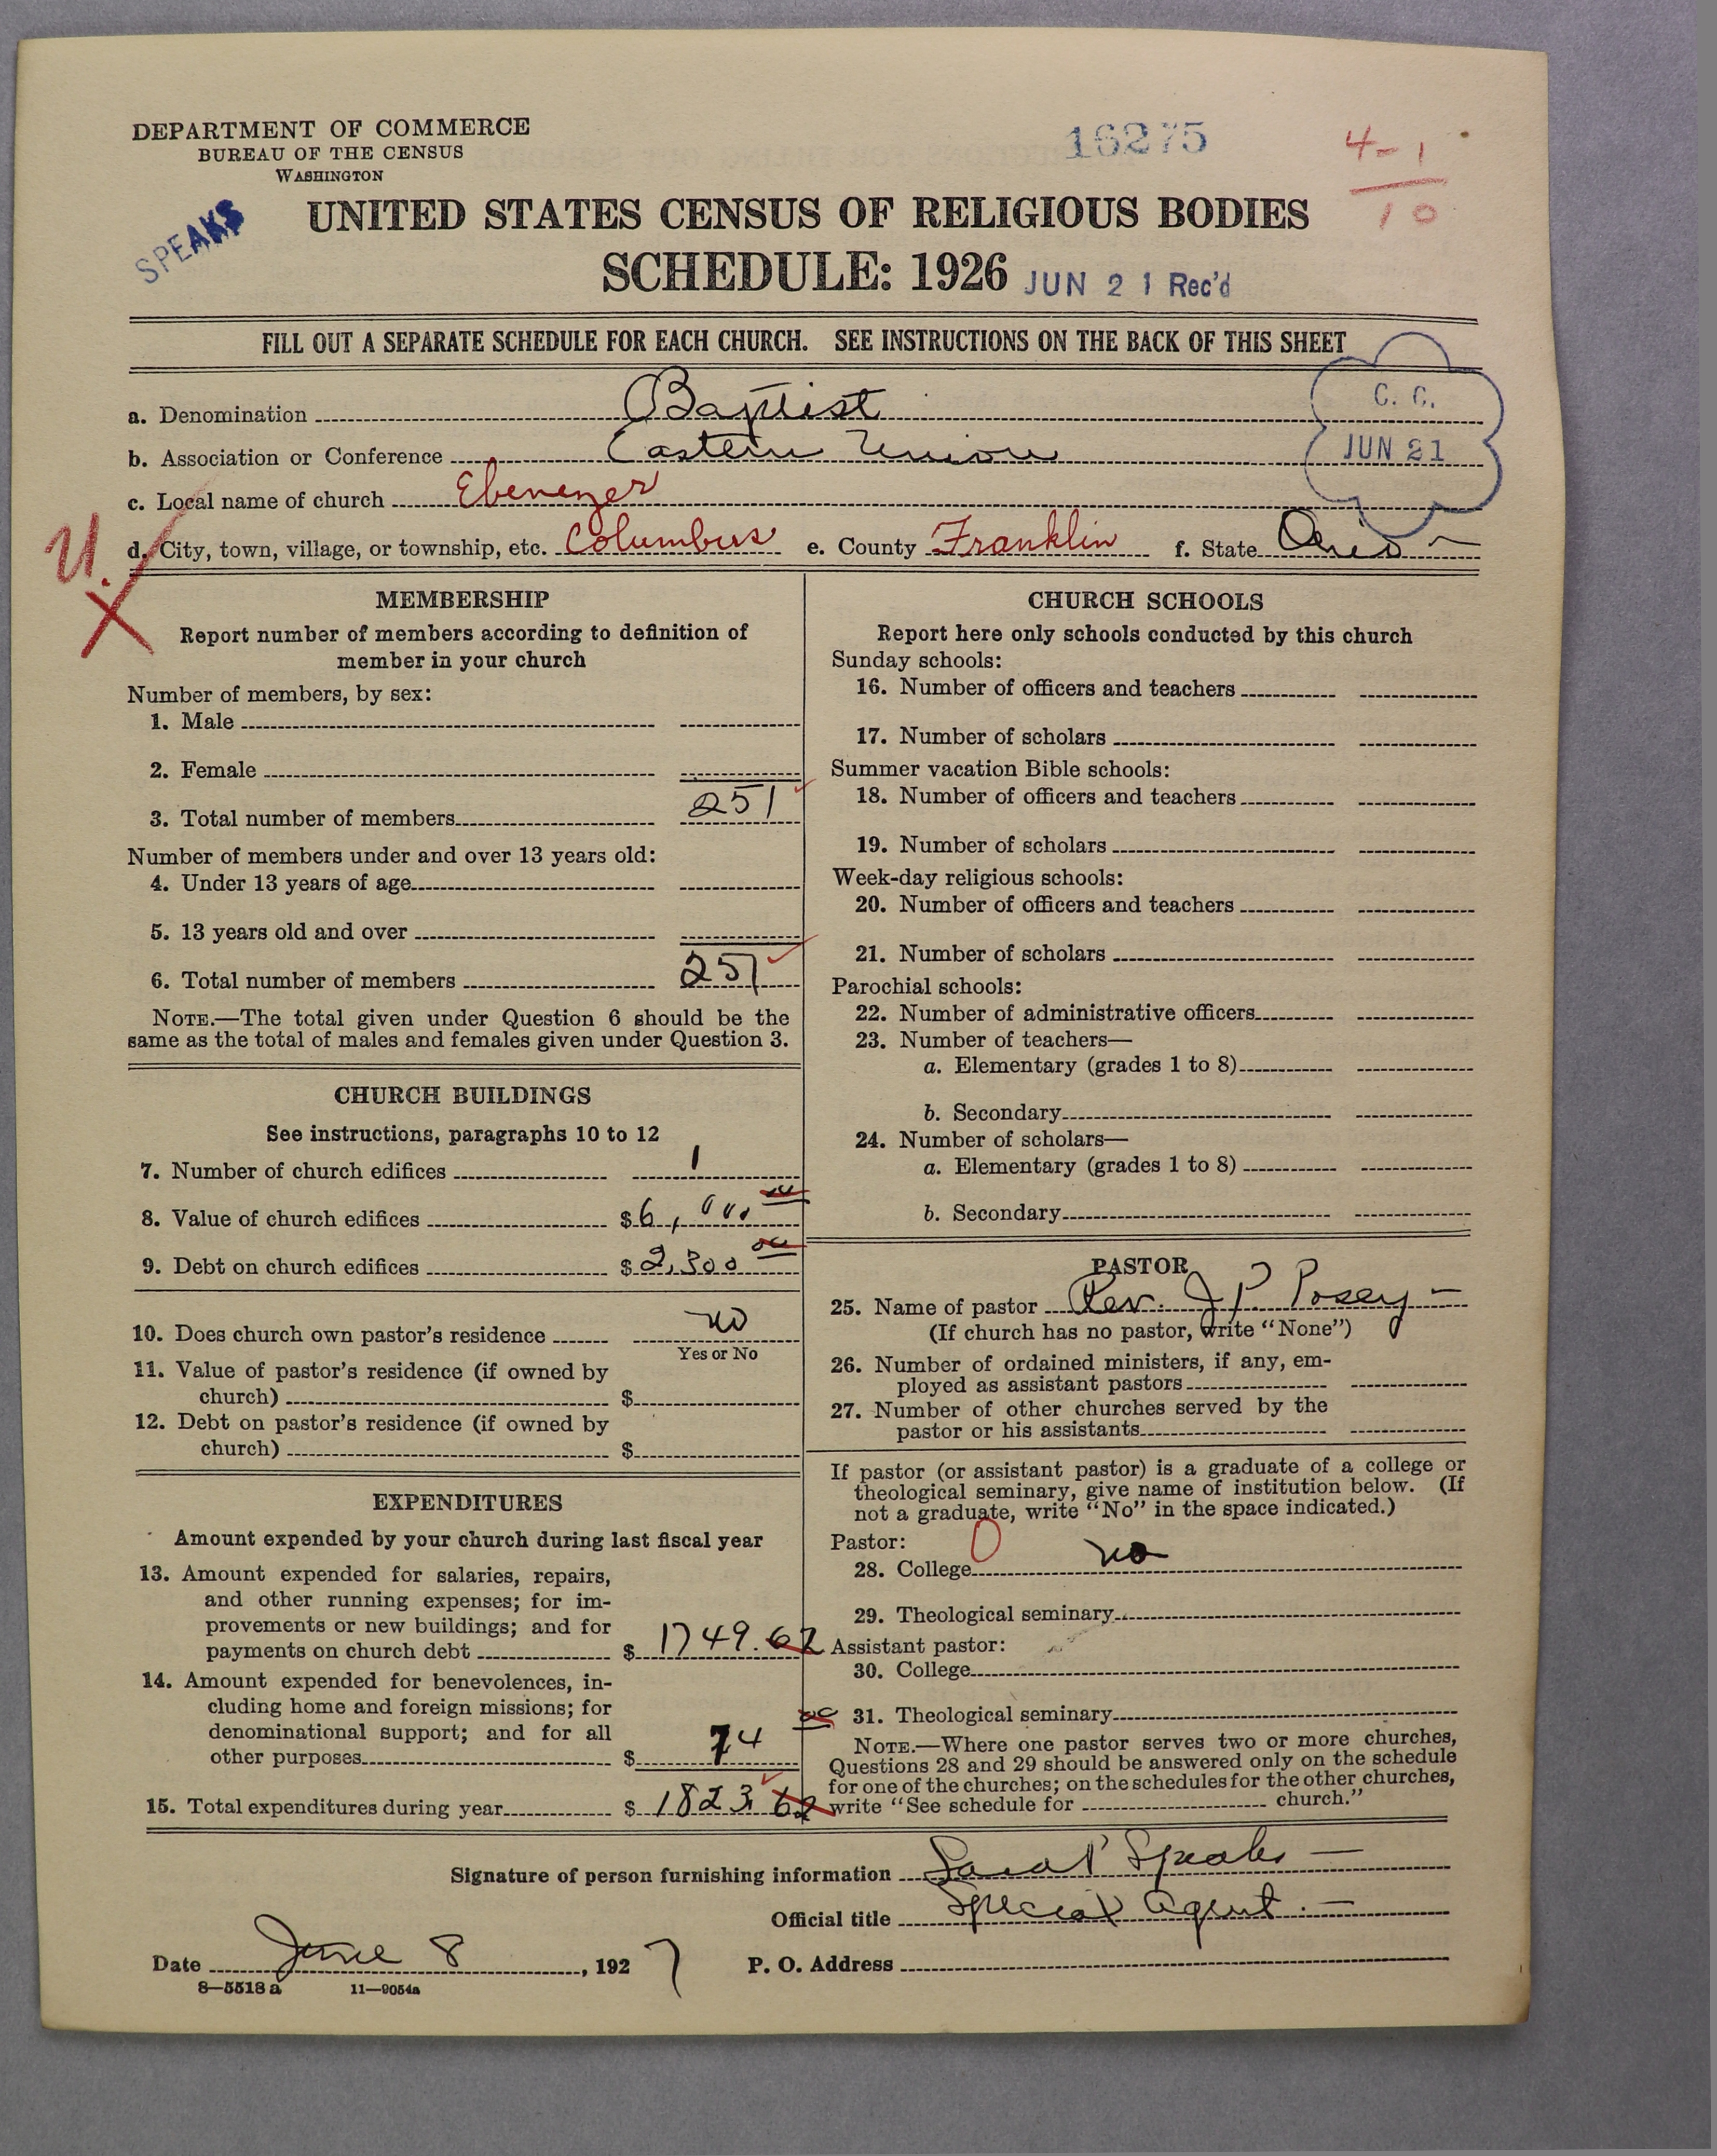 DEPARTMENT OF COMMERCE
BUREAU OF THE CENSUS
WASHINGTON
16275
4-1
10
SPEAKS
UNITED STATES CENSUS OF RELIGIOUS BODIES
SCHEDULE: 1926 JUN 21 Rec'd
FILL OUT A SEPARATE SCHEDULE FOR EACH CHURCH. SEE INSTRUCTIONS ON THE BACK OF THIS SHEET
C. C.
JUN 21
a. Denomination Baptist
b. Association or Conference Eastern Union
c. Local name of church Ebenezer
U.
d. City, town, village, or township, etc. Columbus e. County Franklin f. State Ohio
MEMBERSHIP
Report number of members according to definition of
member in your church
Number of members, by sex:
1. Male
2. Female
3. Total number of members 251
Number of members under and over 13 years old:
4. Under 13 years of age
5. 13 years old and over
6. Total number of members 251
NOTE.—The total given under Question 6 should be the
same as the total of males and females given under Question 3.
CHURCH BUILDINGS
See instructions, paragraphs 10 to 12
7. Number of church edifices 1
8. Value of church edifices $ 6,000 00
9. Debt on church edifices $ 2,300 00
10. Does church own pastor's residence no
Yes or No
11. Value of pastor's residence (if owned by
church) $
12. Debt on pastor's residence (if owned by
church) $
EXPENDITURES
Amount expended by your church during last fiscal year
13. Amount expended for salaries, repairs,
and other running expenses; for im-
provements or new buildings; and for
payments on church debt $ 1749.62
14. Amount expended for benevolences, in-
cluding home and foreign missions; for
denominational support; and for all
other purposes $ 74 00
15. Total expenditures during year $ 1823.62
CHURCH SCHOOLS
Report here only schools conducted by this church
Sunday schools:
16. Number of officers and teachers
17. Number of scholars
Summer vacation Bible schools:
18. Number of officers and teachers
19. Number of scholars
Week-day religious schools:
20. Number of officers and teachers
21. Number of scholars
Parochial schools:
22. Number of administrative officers
23. Number of teachers—
a. Elementary (grades 1 to 8)
b. Secondary
24. Number of scholars—
a. Elementary (grades 1 to 8)
b. Secondary
PASTOR
25. Name of pastor Rev. J P Posey
(If church has no pastor, write "None")
26. Number of ordained ministers, if any, em-
ployed as assistant pastors
27. Number of other churches served by the
pastor or his assistants
If pastor (or assistant pastor) is a graduate of a college or
theological seminary, give name of institution below. (If
not a graduate, write "No" in the space indicated.)
Pastor: 0
28. College no
29. Theological seminary
Assistant pastor:
30. College
31. Theological seminary
NOTE.—Where one pastor serves two or more churches,
Questions 28 and 29 should be answered only on the schedule
for one of the churches; on the schedules for the other churches,
write "See schedule for church."
Signature of person furnishing information Speaks
Official title Special Agent
Date June 8, 1927 P. O. Address
8—5518 a 11—9054a